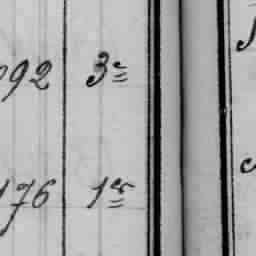 092 3e
176 1er